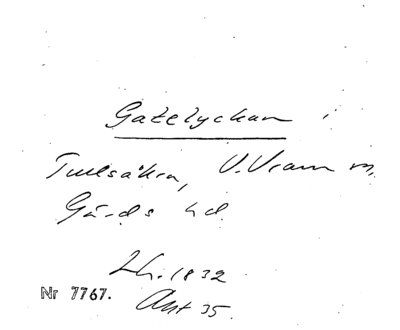 Gatelyckan i
Tullsåkra, V. Vram sn,
Gärds hd.
Lh. 1832
Akt 35.
Nr 7767.